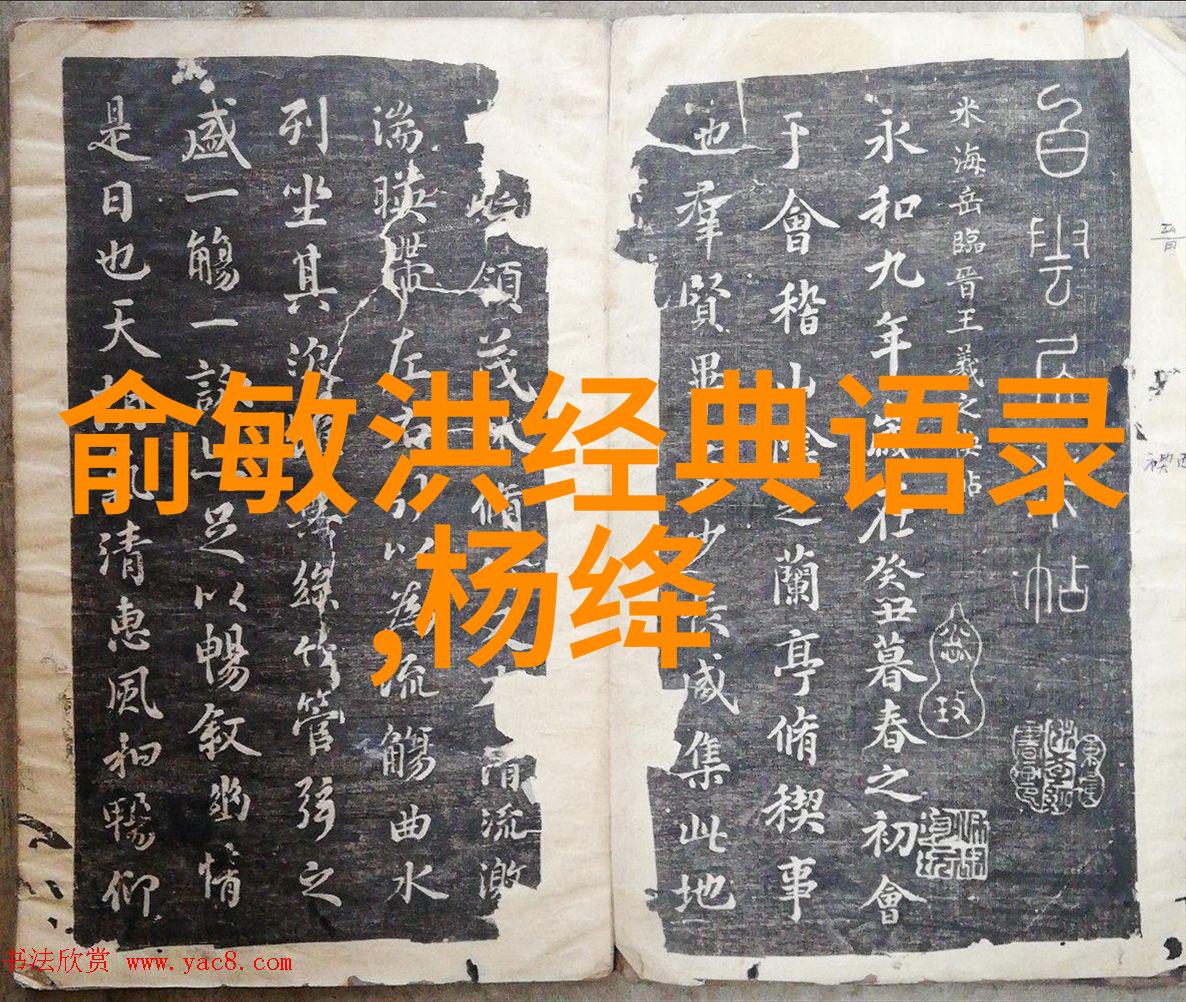 俞敏洪经典语录
,杨绛
白雲居米帖
米海岳臨晉王羲之禊帖
永和九年歲在癸丑暮春之初會
于會稽山陰之蘭亭脩稧事
也羣賢畢至少長咸集此地
領茂林脩竹又有清流激
湍暎帶左右引以為流觴曲水
列坐其次雖無絲竹管弦之
盛一觴一詠亦足以暢敘幽情
是日也天朗氣清惠風和暢仰
书法欣赏 www.yac8.com